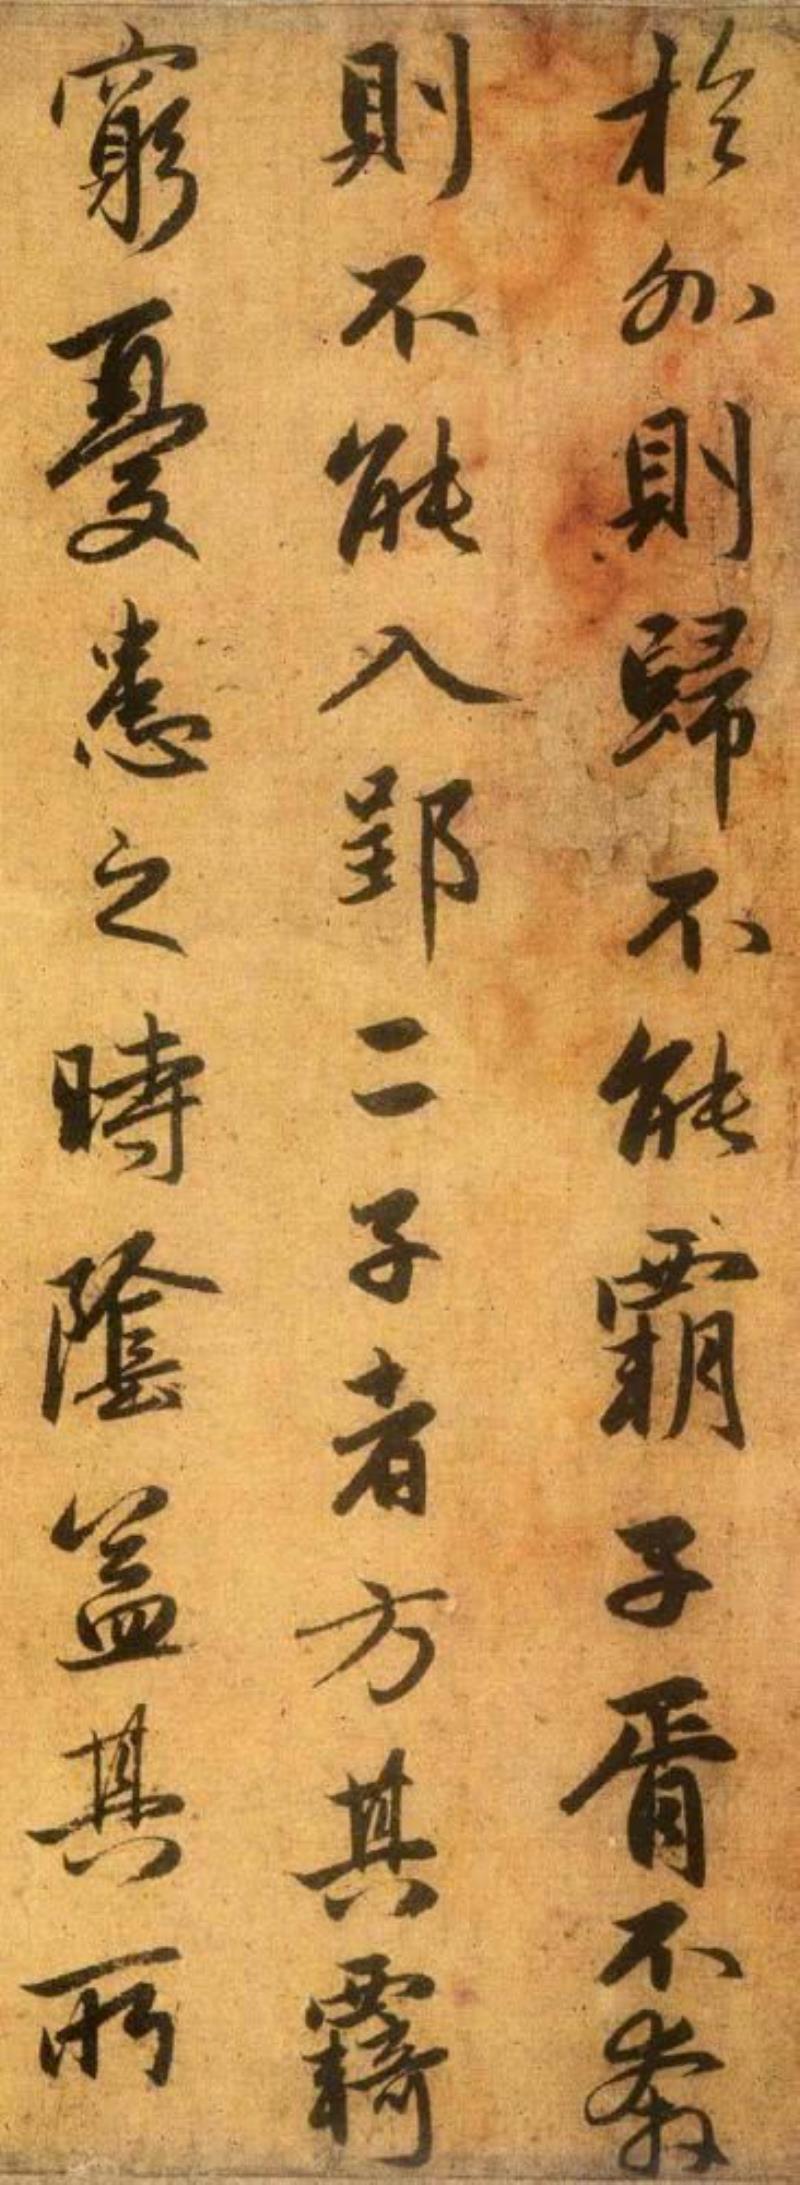 於外則歸不能霸子胥不奔
則不能入郢二子者方其羈
窮憂患之時陰益其所